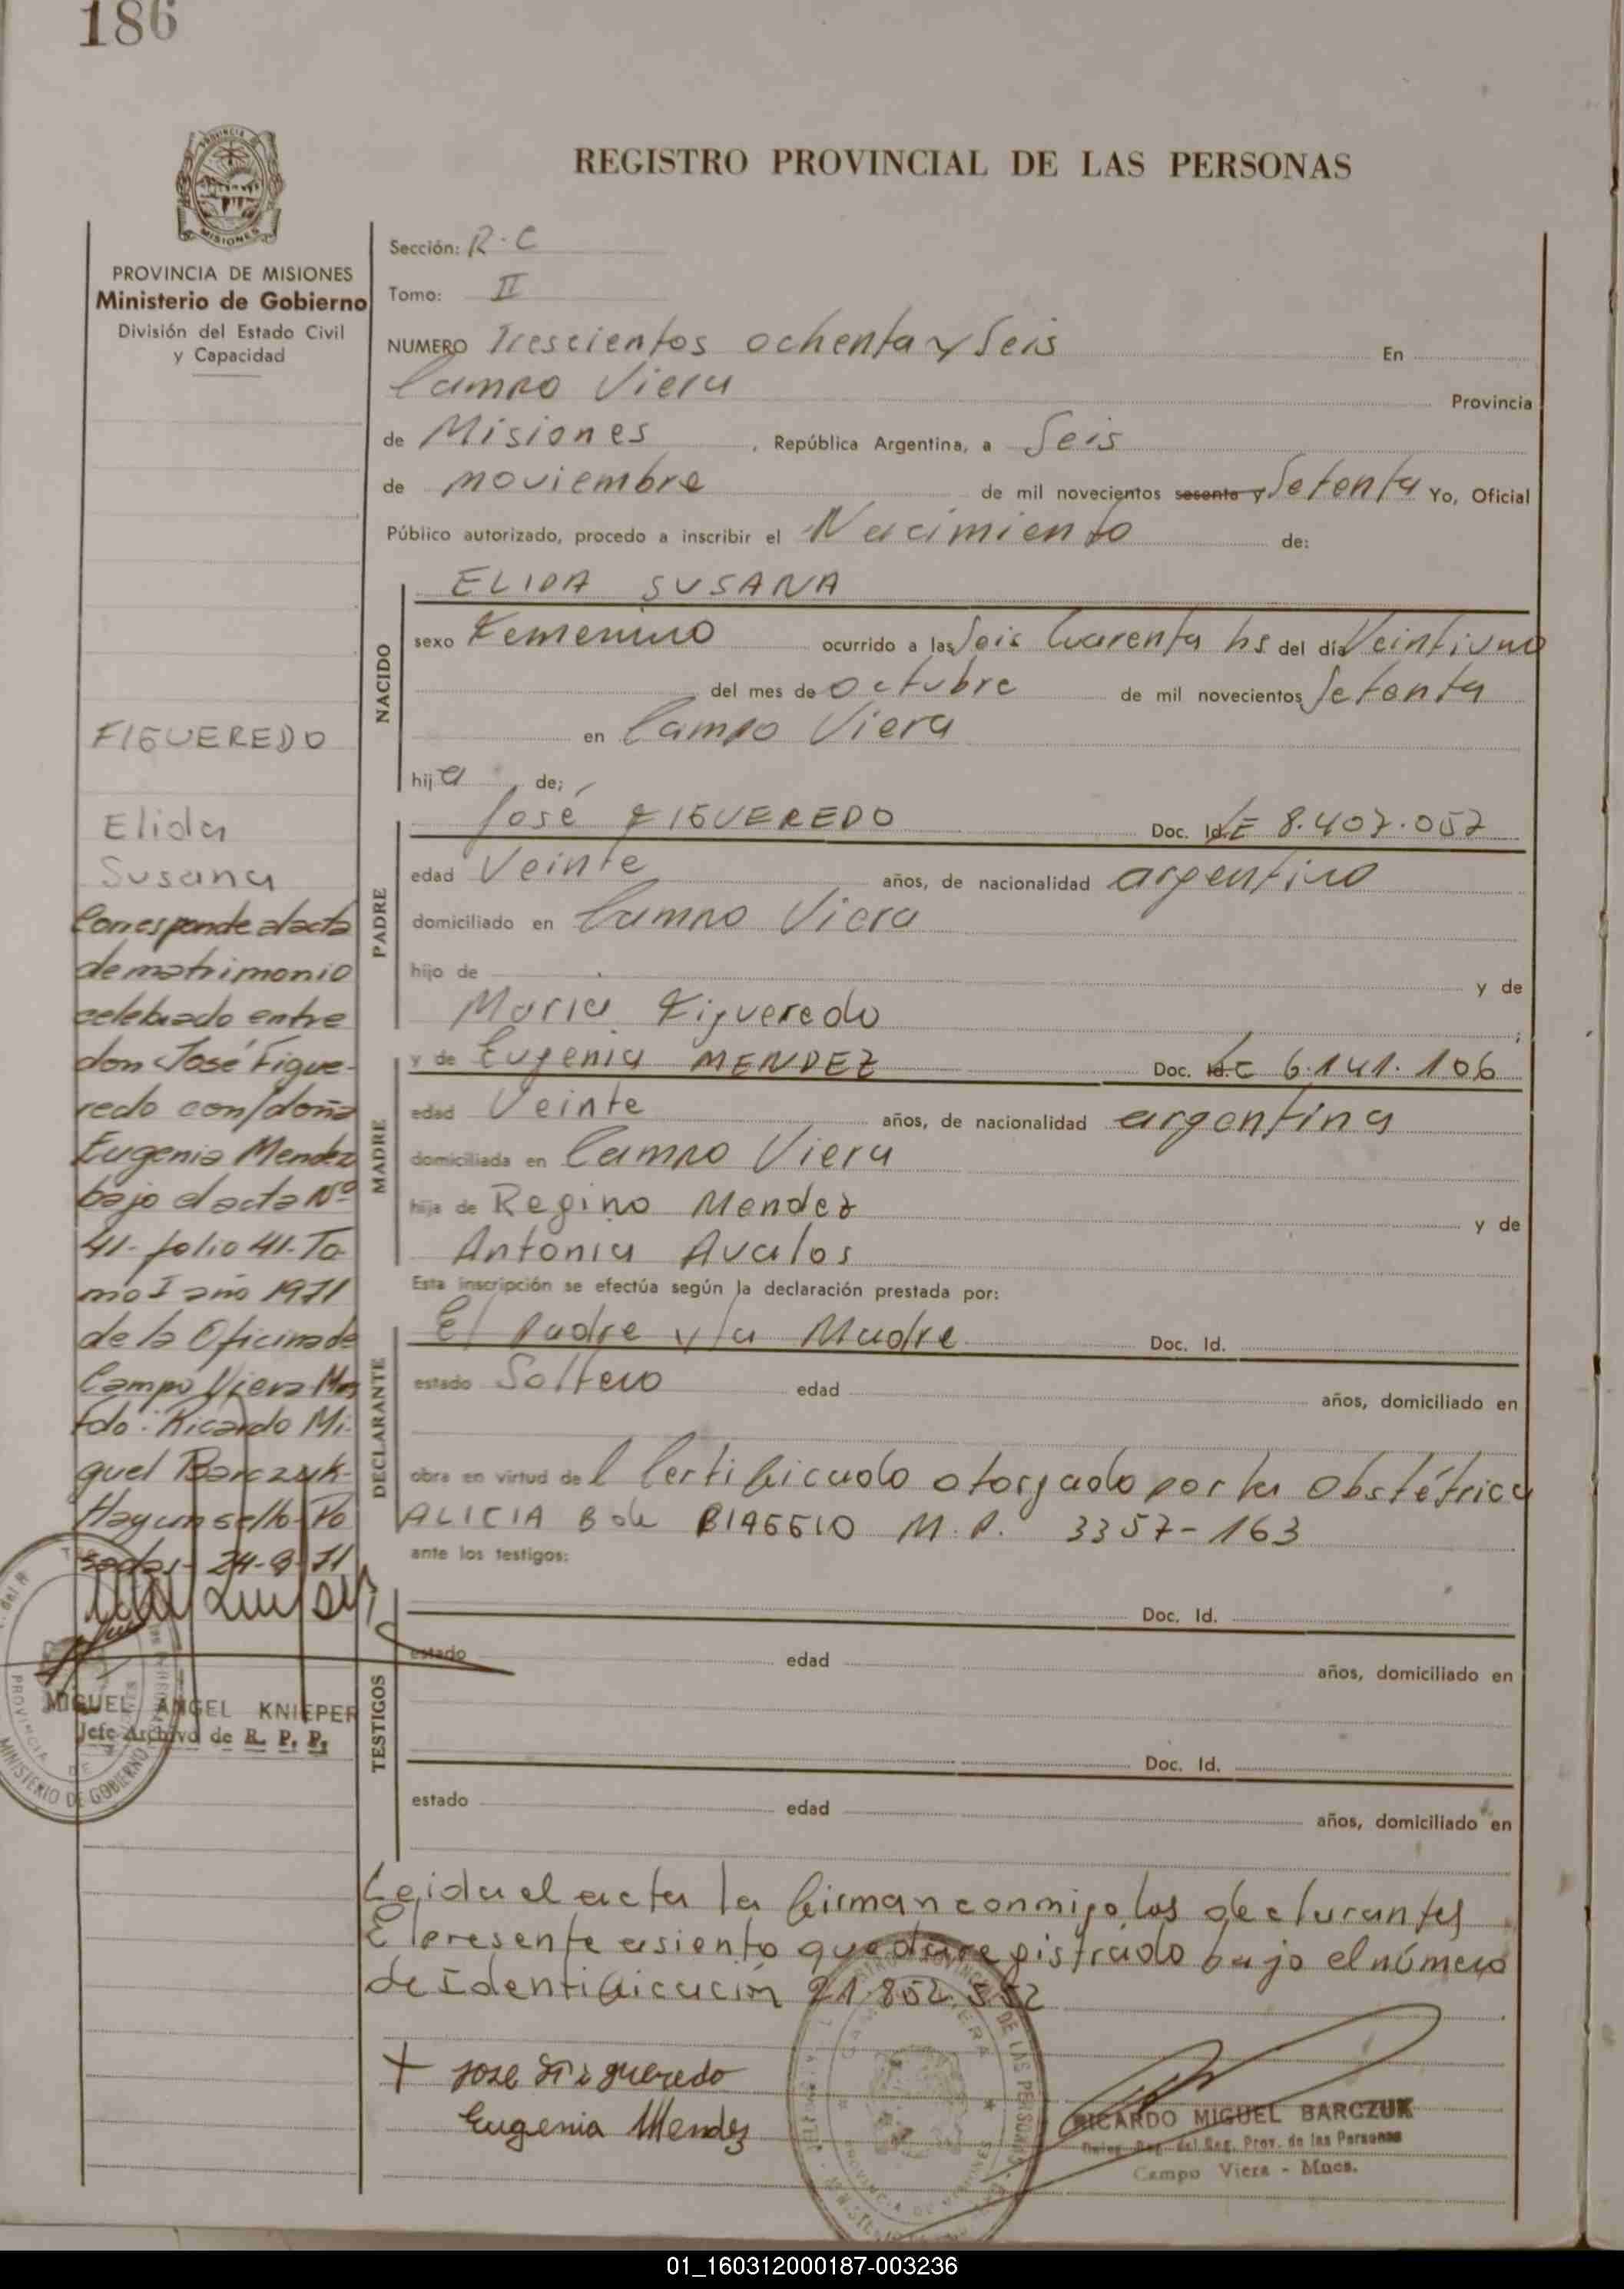 186
REGISTRO PROVINCIAL DE LAS PERSONAS
PROVINCIA DE MISIONES
Ministerio de Gobierno
División del Estado Civil
y Capacidad
FIGUEREDO
Elida
Susana
Corresponde al acta
de matrimonio
celebrado entre
don José Figue-
redo con/doña
Eugenia Mendez
bajo el acta Nº
41- folio 41. To
mo I año 1971
de la Oficina de
Campo Viera Mns
fdo: Ricardo Mi-
guel Barczuk-
Hay un sello- Po
sadas- 24-9-71
MIGUEL ANGEL KNIEPER
Jefe Archivo de R. P. P.
Sección: R.C
Tomo: II
NUMERO Trescientos ochenta y Seis En
Campo Viera Provincia
de Misiones, República Argentina, a Seis
de noviembre de mil novecientos sesenta y Setenta Yo, Oficial
Público autorizado, procedo a inscribir el Nacimiento de:
NACIDO
ELIDA SUSANA
sexo Femenino ocurrido a las Seis Cuarenta hs del día Veintiuno
del mes de octubre de mil novecientos Setenta
en Campo Viera
hija de:
PADRE
José FIGUEREDO Doc. Id. LE 8.407.057
edad Veinte años, de nacionalidad argentina
domiciliado en Campo Viera
hijo de y de
Maria Figueredo ;
MADRE
y de Eugenia MENDEZ Doc. Id. LC 6.141.106
edad Veinte años, de nacionalidad argentina
domiciliada en Campo Viera
hija de Regino Mendez y de
Antonia Avalos
Esta inscripción se efectúa según la declaración prestada por:
DECLARANTE
El Padre y la Madre Doc. Id.
estado Soltero edad años, domiciliado en
obra en virtud del Certificado otorgado por la Obstétrica
ALICIA B de BIAGGIO M.P. 3357-163
ante los testigos:
TESTIGOS
Doc. Id.
estado edad años, domiciliado en
Doc. Id.
estado edad años, domiciliado en
Leida el acta la firman conmigo los declarantes
El presente asiento queda registrado bajo el número
de Identificación 21.852.352
+ Jose Figueredo
Eugenia Mendez
RICARDO MIGUEL BARCZUK
del Reg. Prov. de las Personas
Campo Viera - Mnes.
01_160312000187-003236